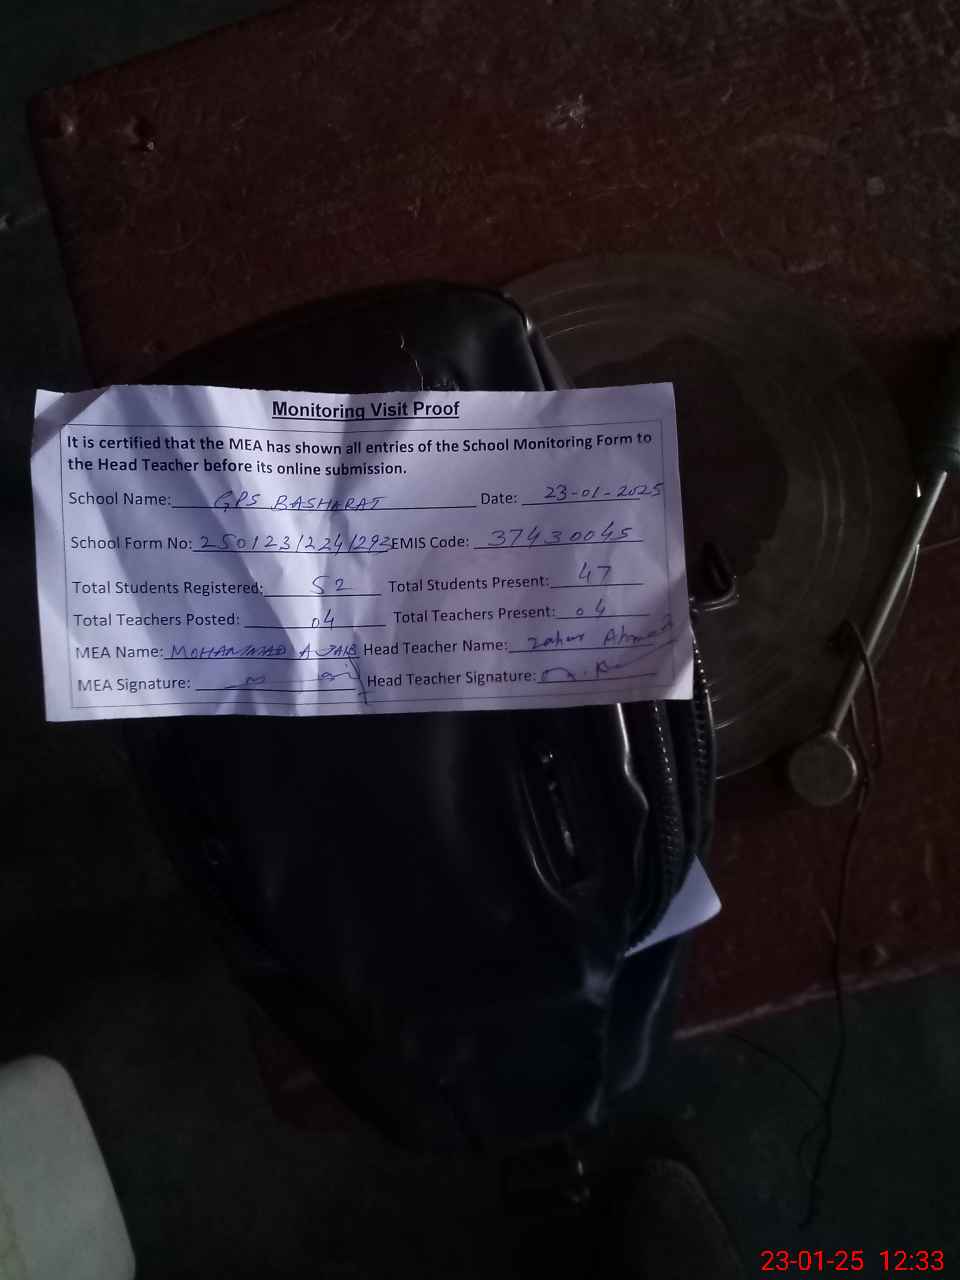 Monitoring Visit Proof
It is certified that the MEA has shown all entries of the School Monitoring Form to
the Head Teacher before its online submission.
School Name: GPS BASHARAT Date: 23-01-2025
School Form No: 250123/224/293 EMIS Code: 37430045
Total Students Registered: 52 Total Students Present: 47
Total Teachers Posted: 04 Total Teachers Present: 04
MEA Name: MOHAMMAD AJAIB Head Teacher Name: Zahur Ahmad
MEA Signature: Head Teacher Signature:
23-01-25 12:33